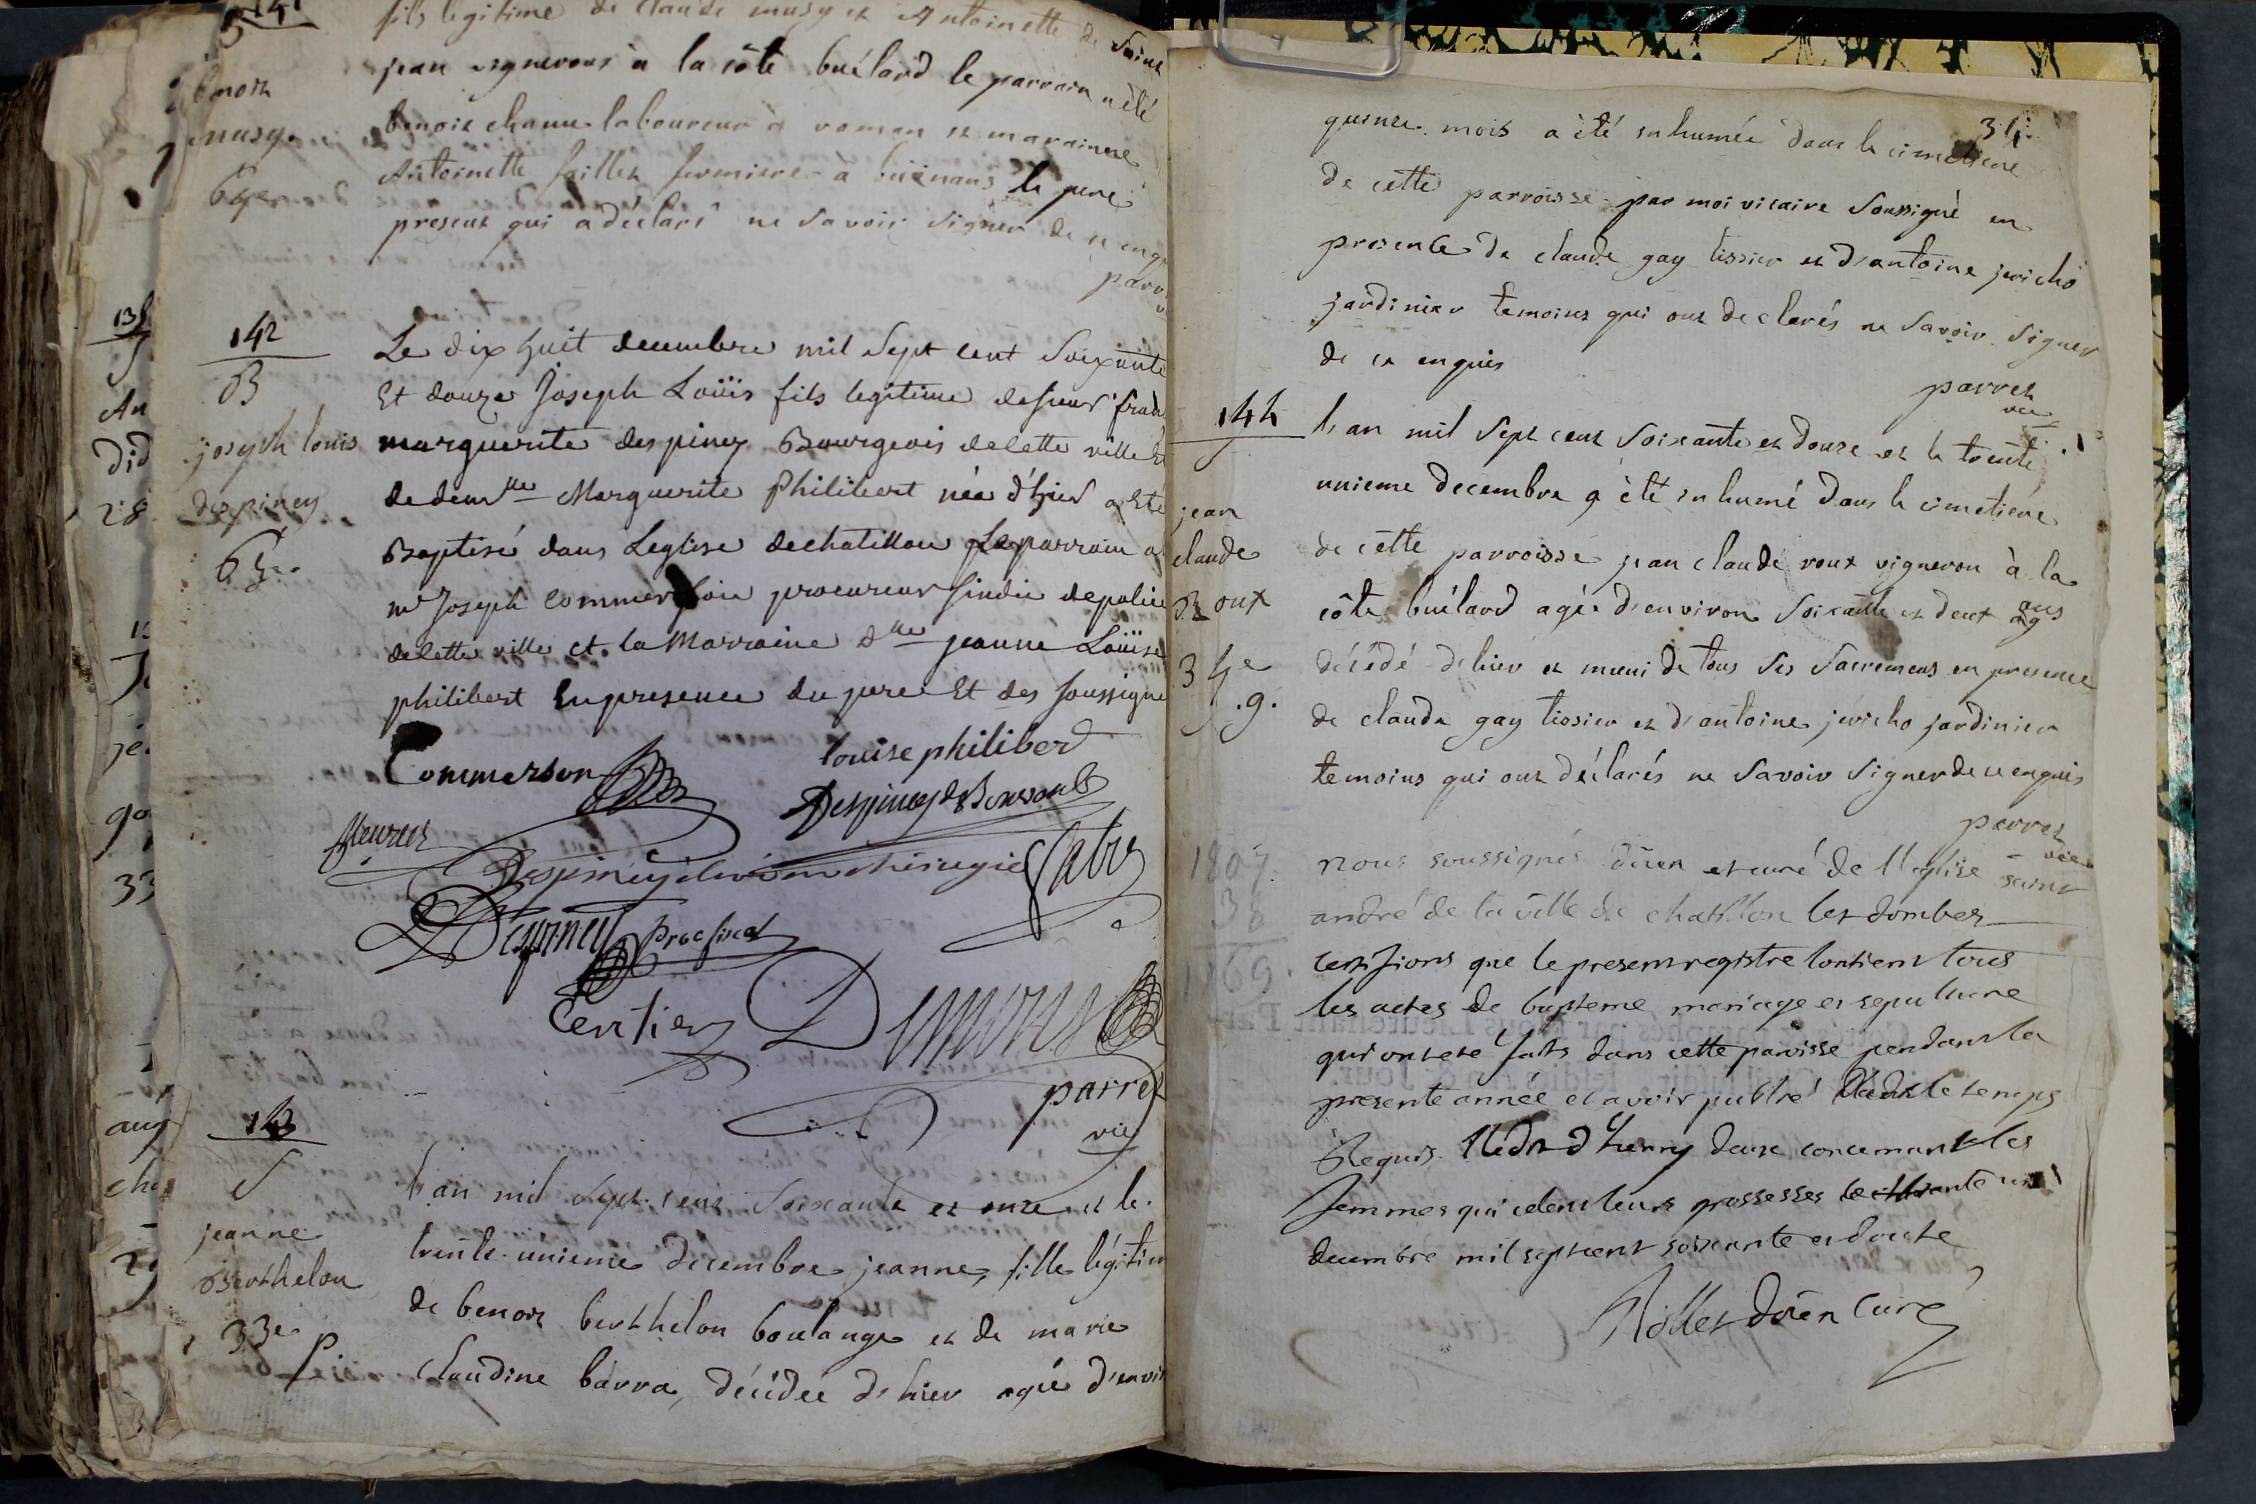 141
fils legitime de Claude musy et Antoinette de Saint
jean vignerons à la côte buélard le parrain a été
benoit chanu laboureur à roman et marainne
Antoinette faillet fermiere à buënans le pere
present qui a déclaré ne savoir signer de ce enq
parr
benoit
musy
142
B
joseph louis
despiney
Le dix huit decembre mil Sept cent Soixante
Et douze Joseph Loüis fils legitime de sieur
marguerite despiney Bourgeois delette ville Et
de demlle Marguerite Philibert née d'hier a Eté
Baptisé dans Leglise dechatillon Leparrain a
mr Joseph Commerson procureur sindic depolice
delette ville et la Marraine dlle jeanne Loüise
philibert En presence du pere Et des soussigne
Commerson
louise philiberd
Despiney
Despiney procfiscal
parret
vic
143
S
jeanne
Berthelon
33e
l'an mil sept cent soixante et onze et le
trente unieme decembre jeanne, fille légitim
de benoit berthelon boulange et de marie
Claudine barra, décédée d'hier agée d'envir
34
quinze mois a été inhumée dans le cimetiere
de cette parroisse par moi vicaire Soussigné en
presence de claude gay tissier et d'antoine jericho
jardinier temoins qui ont declarés ne Savoir Signer
de ce enquis
parret
vic
144
S
jean
claude
Roux
l'an mil Sept cent Soixante et douze et le trente
unieme decembre a été inhumé dans le cimetiére
de cette parroisse jean claude roux vigneron à la
côte buélard agée d'environ Soixante et deux ans
décédé d'hier et muni de tous Ses Sacremens en presence
de claude gay tissier et d'antoine jericho jardinier
temoins qui ont déclarés ne Savoir Signer de ce enquis
parret
vic
1807
38
1769
nous soussignés döien et curé de l'eglise saint
andré de la ville de chatillon les dombes
certifions que le present registre contient tous
les actes de bapteme mariage et sepulture
qui ont ete faits dans cette paroisse pendant la
presente année et avoir publié dans le temps
Requis l'Edit d'henry deux concernant les
femmes qui celent leurs grossesses le trente un
decembre mil sept cent soixante et douze
Rollet doien curé